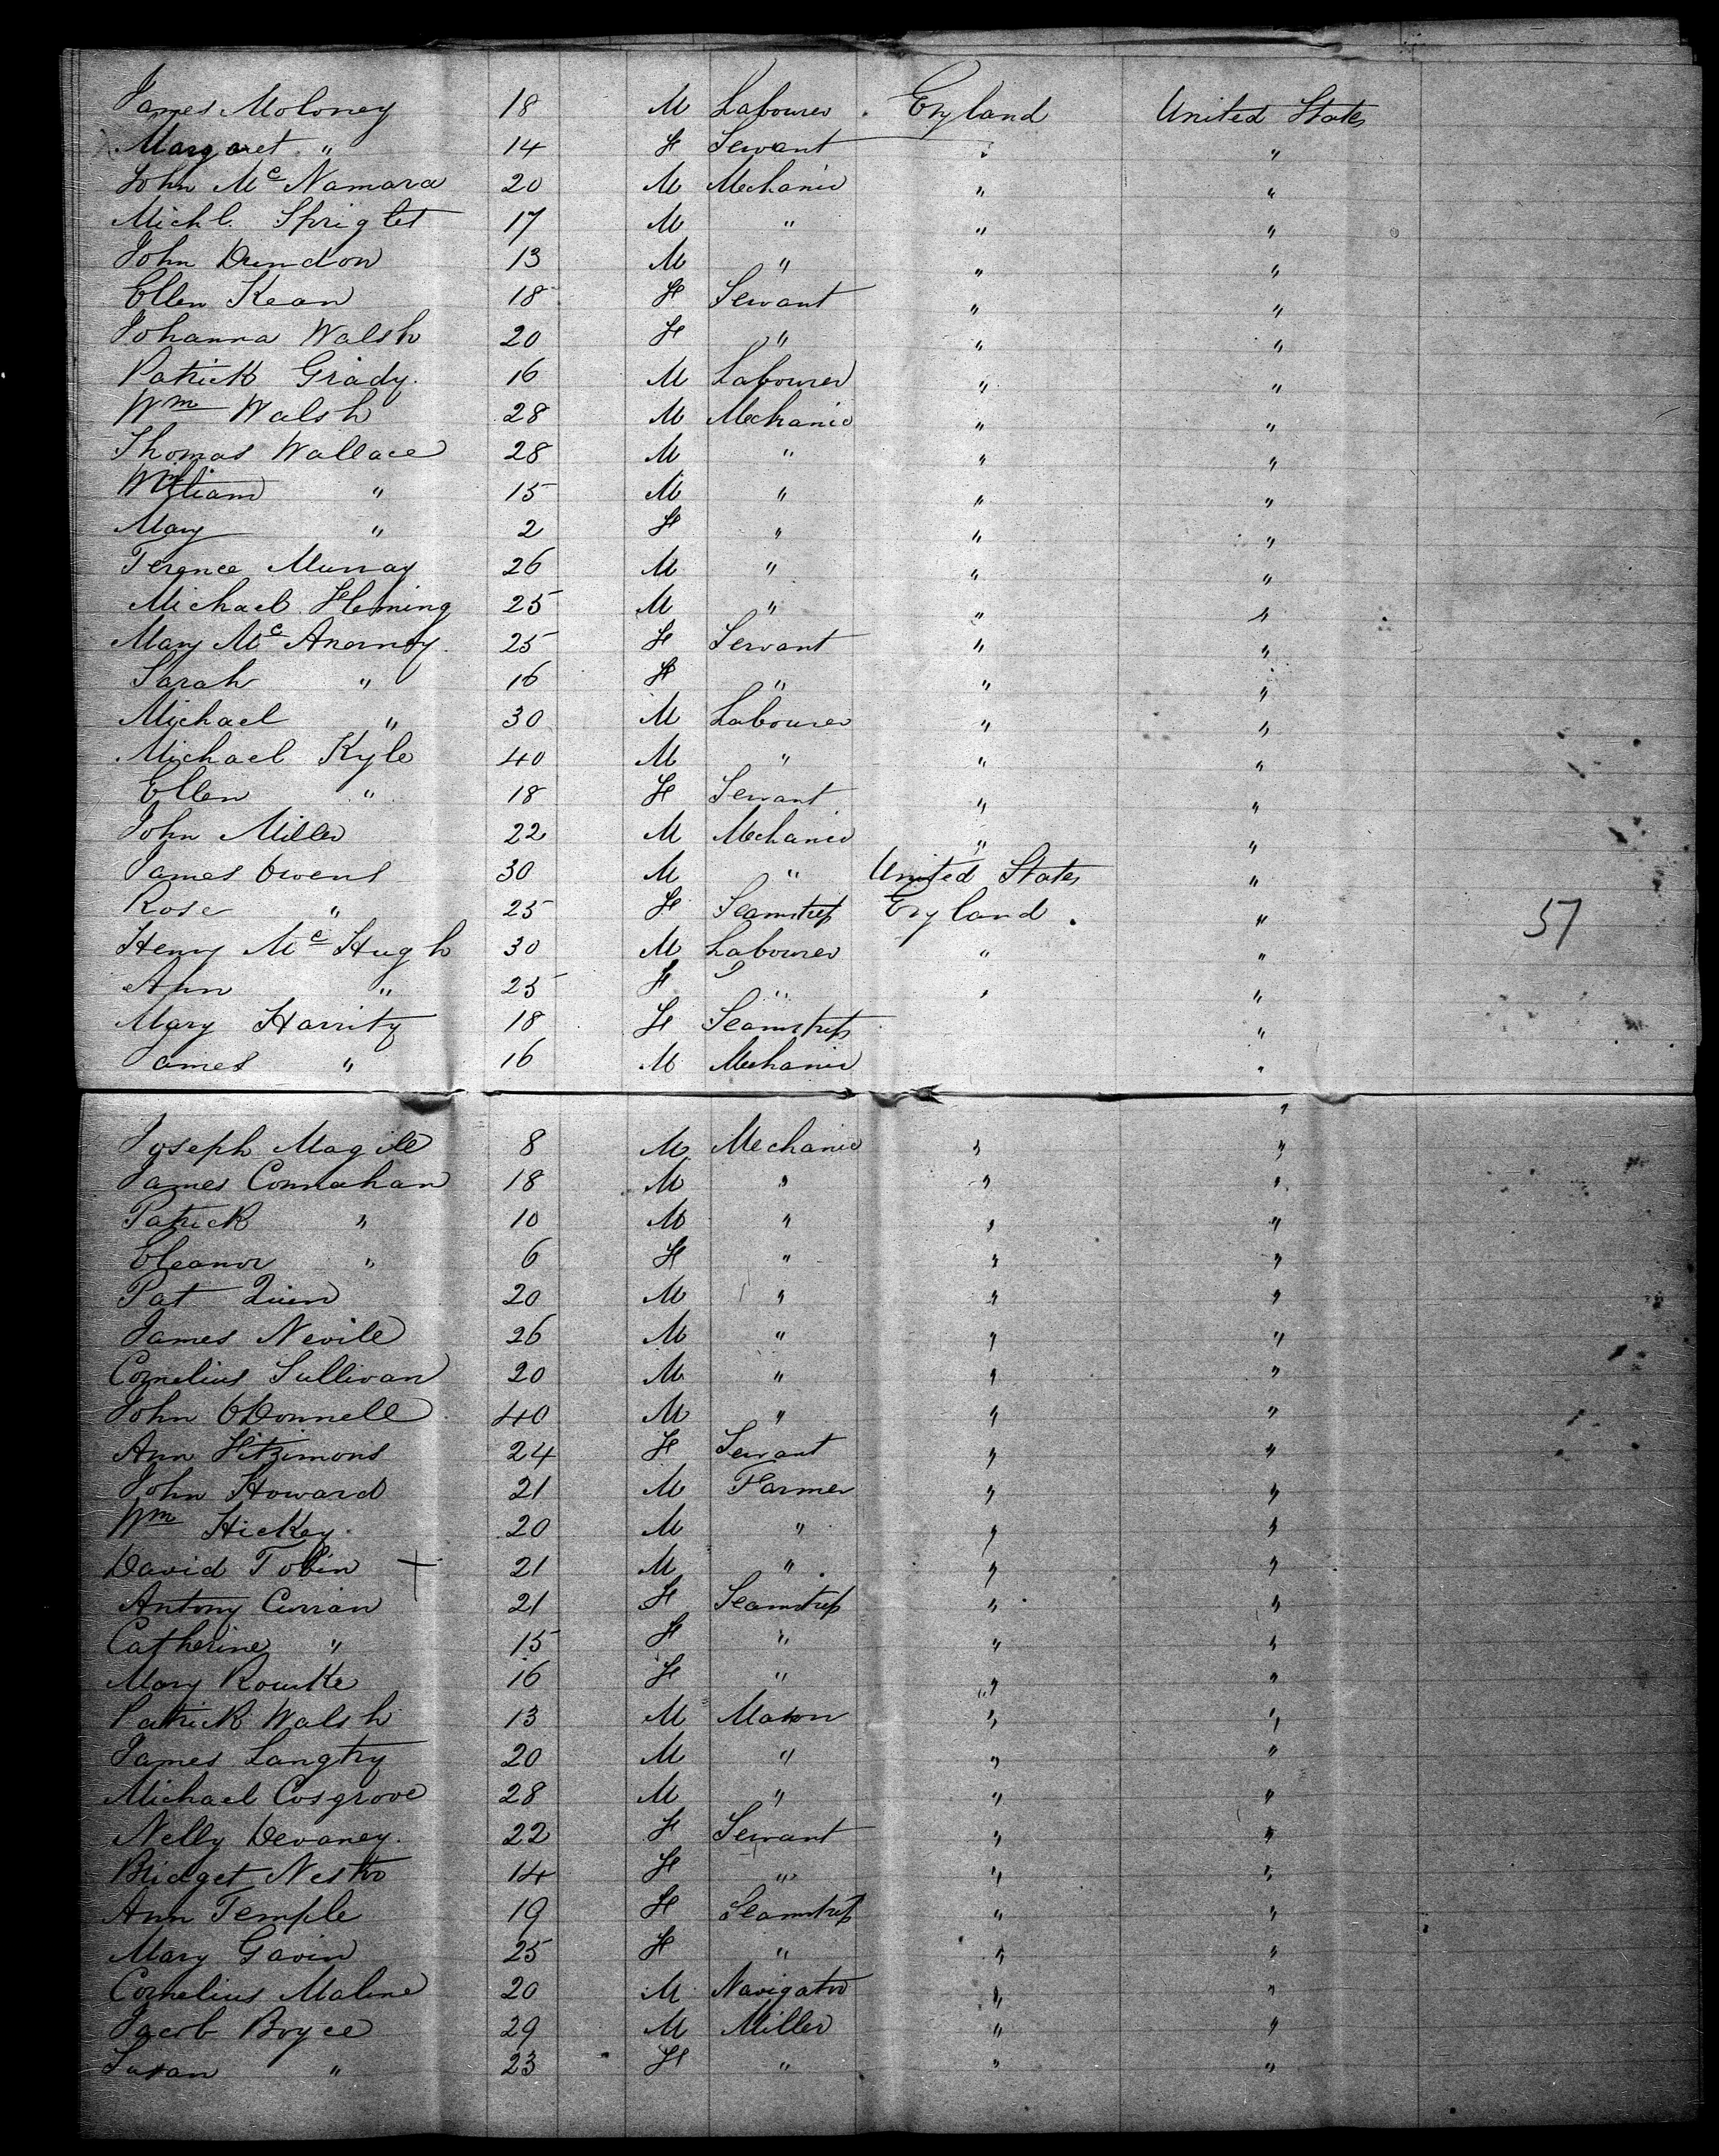 James Moloney 18 M Labourer England United States
Margaret " 14 F Servant " "
John McNamara 20 M Mechanic " "
Michl. Spriglet 17 M " " "
John Dundon 13 M " " "
Ellen Kean 18 F Servant " "
Johanna Walsh 20 F " " "
Patrick Grady. 16 M Labourer " "
Wm Walsh 28 M Mechanic " "
Thomas Wallace 28 M " " "
William " 15 M " " "
Mary " 2 F " " "
Terence Murray 26 M " " "
Michael Fleming 25 M " " "
Mary Mc 25 F Servant " "
Sarah " 16 F " " "
Michael " 30 M Labourer " "
Michael Kyle 40 M " " "
Ellen " 18 F Servant " "
John Miller 22 M Mechanic " "
James Owens 30 M " United States "
Rose " 25 F Seamstress England. "
57
Henry McHugh 30 M Labourer " "
Ann " 25 F " " "
Mary Harrity 18 F Seamstress "
James " 16 M Mechanic "
Joseph Magill 8 M Mechanic " "
James Connahan 18 M " " "
Patrick " 10 M " " "
Eleanor " 6 F " " "
Pat Quin 20 M " " "
James Nevile 26 M " " "
Cornelius Sullivan 20 M " " "
John ODonnell 40 M " " "
Ann Fitzimons 24 F Servant " "
John Howard 21 M Farmer " "
Wm Hickey. 20 M " " "
David Tobin + 21 M " " "
Antony Curran 21 F Seamstress " "
Catherine " 15 F " " "
Mary Rourke 16 F " " "
Patrick Walsh 13 M Mason " "
James Langtry 20 M " " "
Michael Cosgrove 28 M " " "
Nelly Devaney. 22 F Servant " "
Bridget Nestor 14 F " " "
Ann Temple 19 F Seamstress " "
Mary Gavin 25 F " " "
Cornelius Malone 20 M Navigator " "
Jacob Boyce 29 M Miller " "
Susan " 23 F " " "